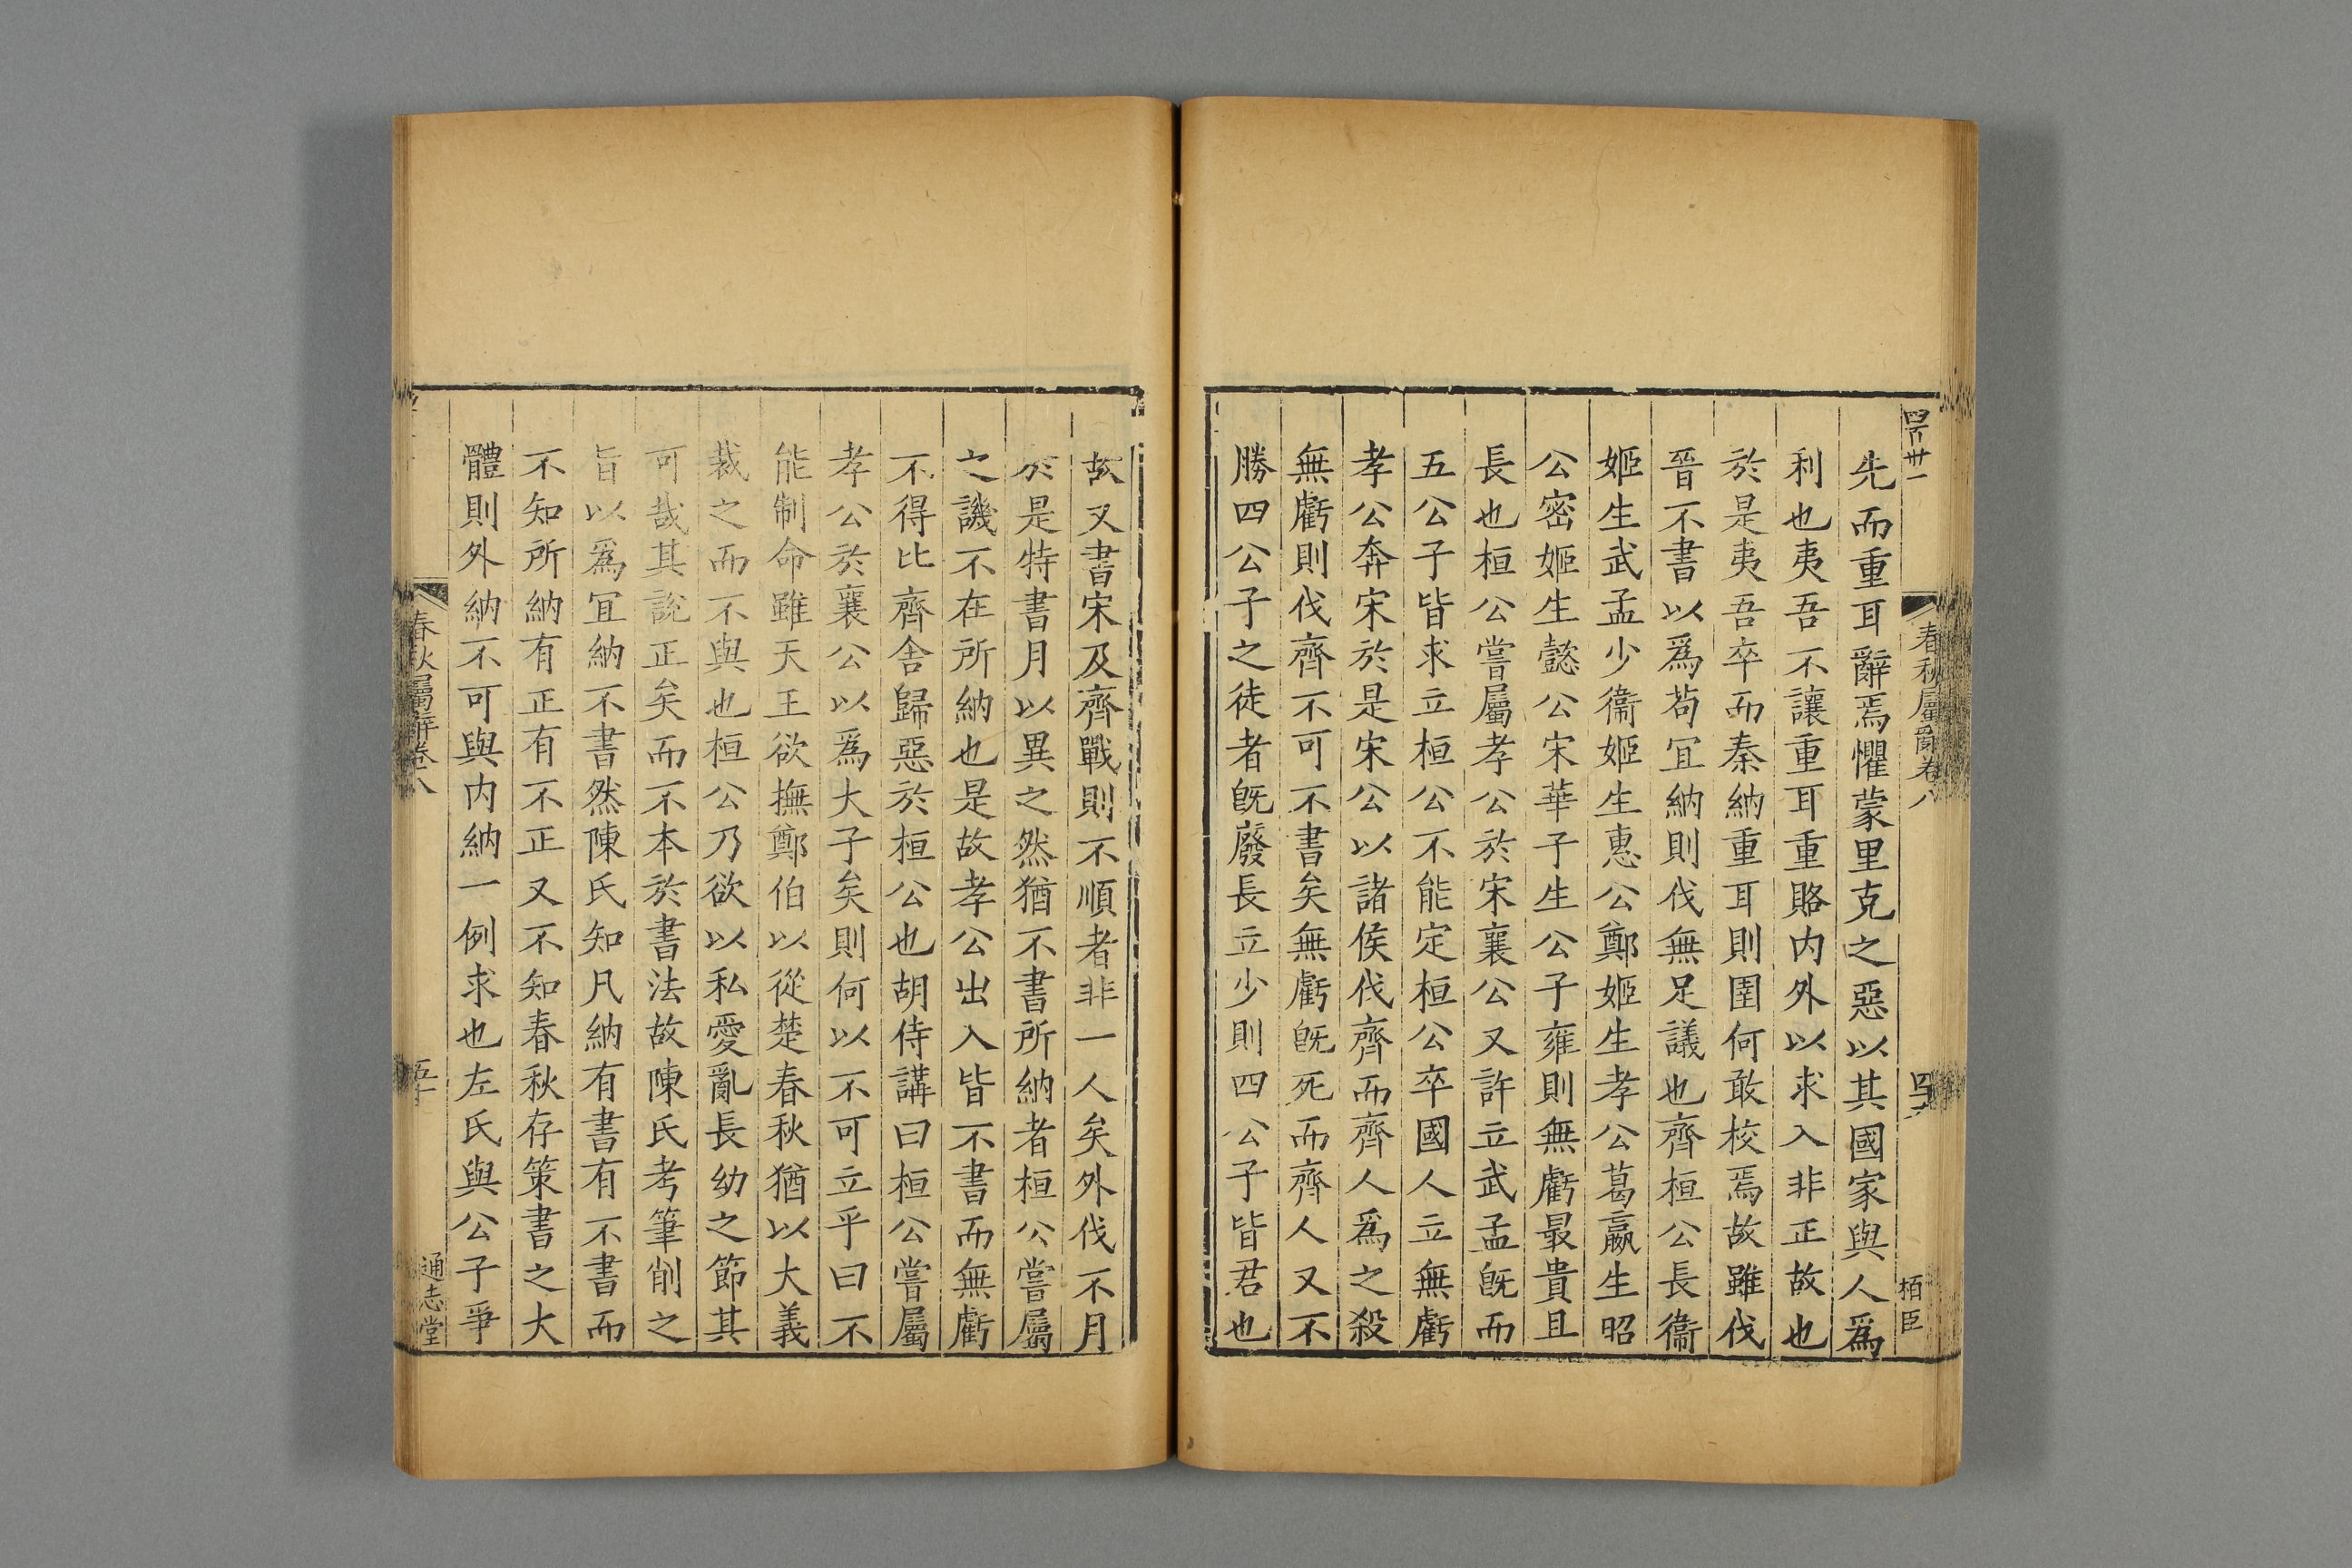 先而重耳辭焉懼蒙里克之惡以其國家與人爲
利也夷吾不讓重耳重賂内外以求入非正故也
於是夷吾卒而秦納重耳則圉何敢校焉故雖伐
晉不書以爲苟宜納則伐無足議也齊桓公長衞
姬生武孟少衞姬生惠公鄭姬生孝公葛嬴生昭
公密姬生懿公宋華子生公子雍則無虧最貴且
長也桓公嘗屬孝公於宋襄公又許立武孟旣而
五公子皆求立桓公不能定桓公卒國人立無虧
孝公奔宋於是宋公以諸侯伐齊而齊人爲之殺
無虧則伐齊不可不書矣無虧旣死而齊人又不
勝四公子之徒者旣廢長立少則四公子皆君也
春秋屬辭卷八
栢臣
故又書宋及齊戰則不順者非一人矣外伐不月
於是特書月以異之然猶不書所納者桓公嘗屬
之譏不在所納也是故孝公出入皆不書而無虧
不得比齊舍歸惡於桓公也胡侍講曰桓公嘗屬
孝公於襄公以爲大子矣則何以不可立乎曰不
能制命雖天王欲撫鄭伯以從楚春秋猶以大義
裁之而不與也桓公乃欲以私愛亂長幼之節其
可哉其說正矣而不本於書法故陳氏考筆削之
旨以爲宜納不書然陳氏知凡納有書有不書而
不知所納有正有不正又不知春秋存策書之大
體則外納不可與内納一例求也左氏與公子爭
春秋屬辭卷八
五十
通志堂